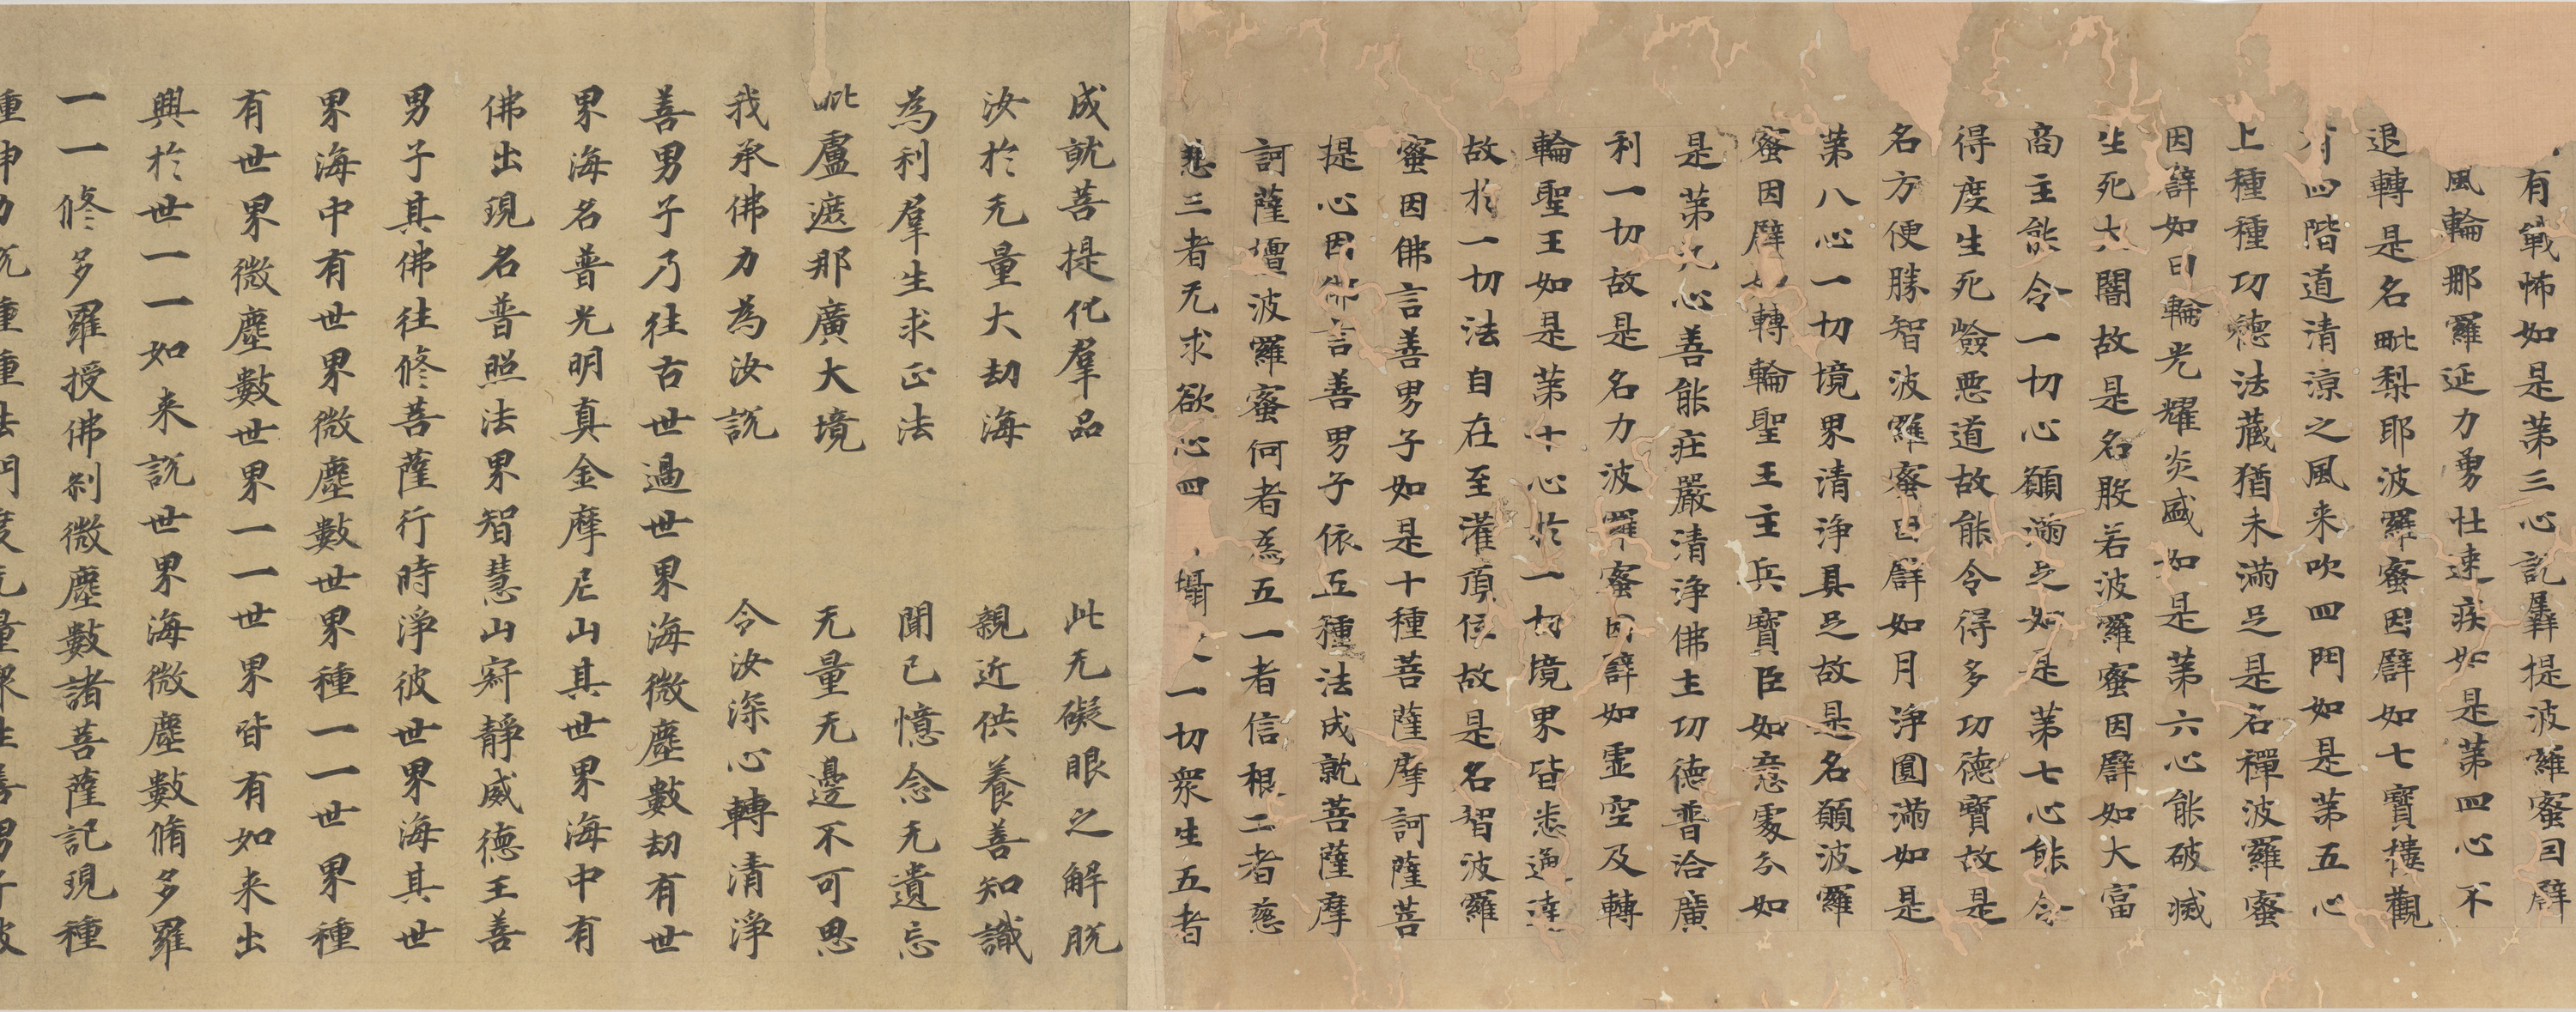 有戰怖如是第三心說羼提波羅蜜因譬
風輪那羅延力勇壯速疾如是第四心不
退轉是名毗梨耶波羅蜜因譬如七寶樓觀
有四階道清涼之風来吹四門如是第五心
上種種功德法藏猶未滿足是名禪波羅蜜
因譬如日輪光耀炎盛如是第六心能破滅
生死大闇故是名般若波羅蜜因譬如大富
商主能令一切心願滿足如是第七心能令
得度生死險惡道故能令得多功德寶故是
名方便勝智波羅蜜因譬如月淨圓滿如是
第八心一切境界清淨具足故是名願波羅
蜜因譬如轉輪聖王主兵寶臣如意處分如
是第九心善能莊嚴清淨佛土功德普洽廣
利一切故是名力波羅蜜因譬如虛空及轉
輪聖王如是第十心於一切境界皆悉通達
故於一切法自在至灌頂位故是名智波羅
蜜因佛言善男子如是十種菩薩摩訶薩菩
提心因佛言善男子依五種法成就菩薩摩
訶薩檀波羅蜜何者為五一者信根二者慈
悲三者无求欲心四攝一切衆生五者
成就菩提化羣品 此无礙眼之解脫
汝於无量大劫海 親近供養善知識
為利羣生求正法 聞已憶念无遺忘
毗盧遮那廣大境 无量无邊不可思
我承佛力為汝説 令汝深心轉清淨
善男子乃往古世過世界海微塵數劫有世
界海名普光明真金摩尼山其世界海中有
佛出現名普照法界智慧山寂靜威德王善
男子其佛往修菩薩行時淨彼世界海其世
界海中有世界微塵數世界種一一世界種
有世界微塵數世界一一世界皆有如来出
興於世一一如来説世界海微塵數脩多羅
一一修多羅授佛剎微塵數諸菩薩記現種
種神力説種種法門度无量衆生善男子彼